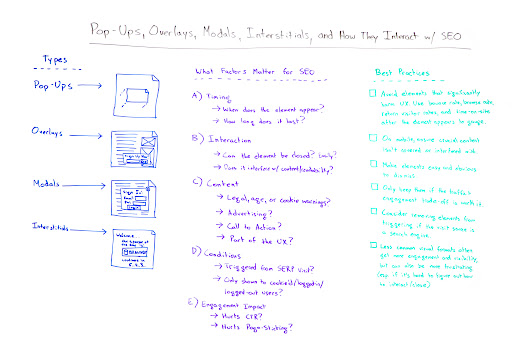 Pop-Ups, Overlays, Modals, Interstitials, and How They Interact w/ SEO
Types
Pop-Ups
Overlays
Modals
Interstitials
Welcome
What Factors Matter for SEO
A) Timing
→ When does the element appear?
→ How long does it last?
B) Interaction
→ Can the element be closed? Easily?
→ Does it interfere w/ content/readability?
C) Content
→ Legal, age, or cookie warnings?
→ Advertising?
→ Call to Action?
→ Part of the UX?
D) Conditions
→ Triggered from SERP visit?
→ Only shown to cookie'd/logged-in/
logged-out users?
E) Engagement Impact
→ Hurts CTR?
→ Hurts Pogo-Sticking?
Best Practices
Avoid elements that significantly
harm UX. Use bounce rate, browse rate,
return visitor rates, and time-on-site
after the element appears to gauge.
On mobile, ensure crucial content
isn't covered or interfered with.
Make elements easy and obvious
to dismiss.
Only keep them if the traffic &
engagement trade-off is worth it.
Consider removing elements from
triggering if the visit source is
a search engine.
Less common visual formats often
get more engagement and visibility,
but can also be more frustrating
(e.g. if it's hard to figure out how
to interact/close)